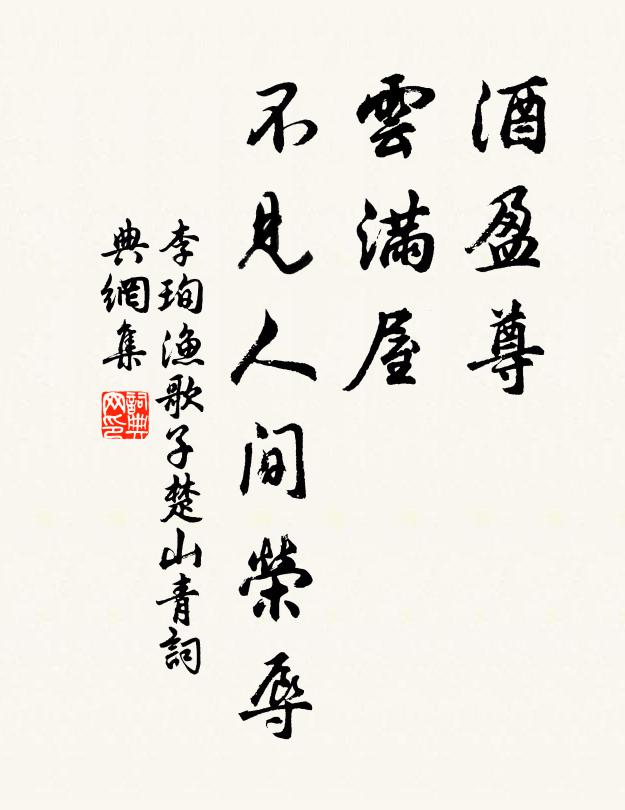 酒盈尊
雲滿屋
不見人間榮辱
李珣漁歌子楚山青詞
典網集
詞典網印